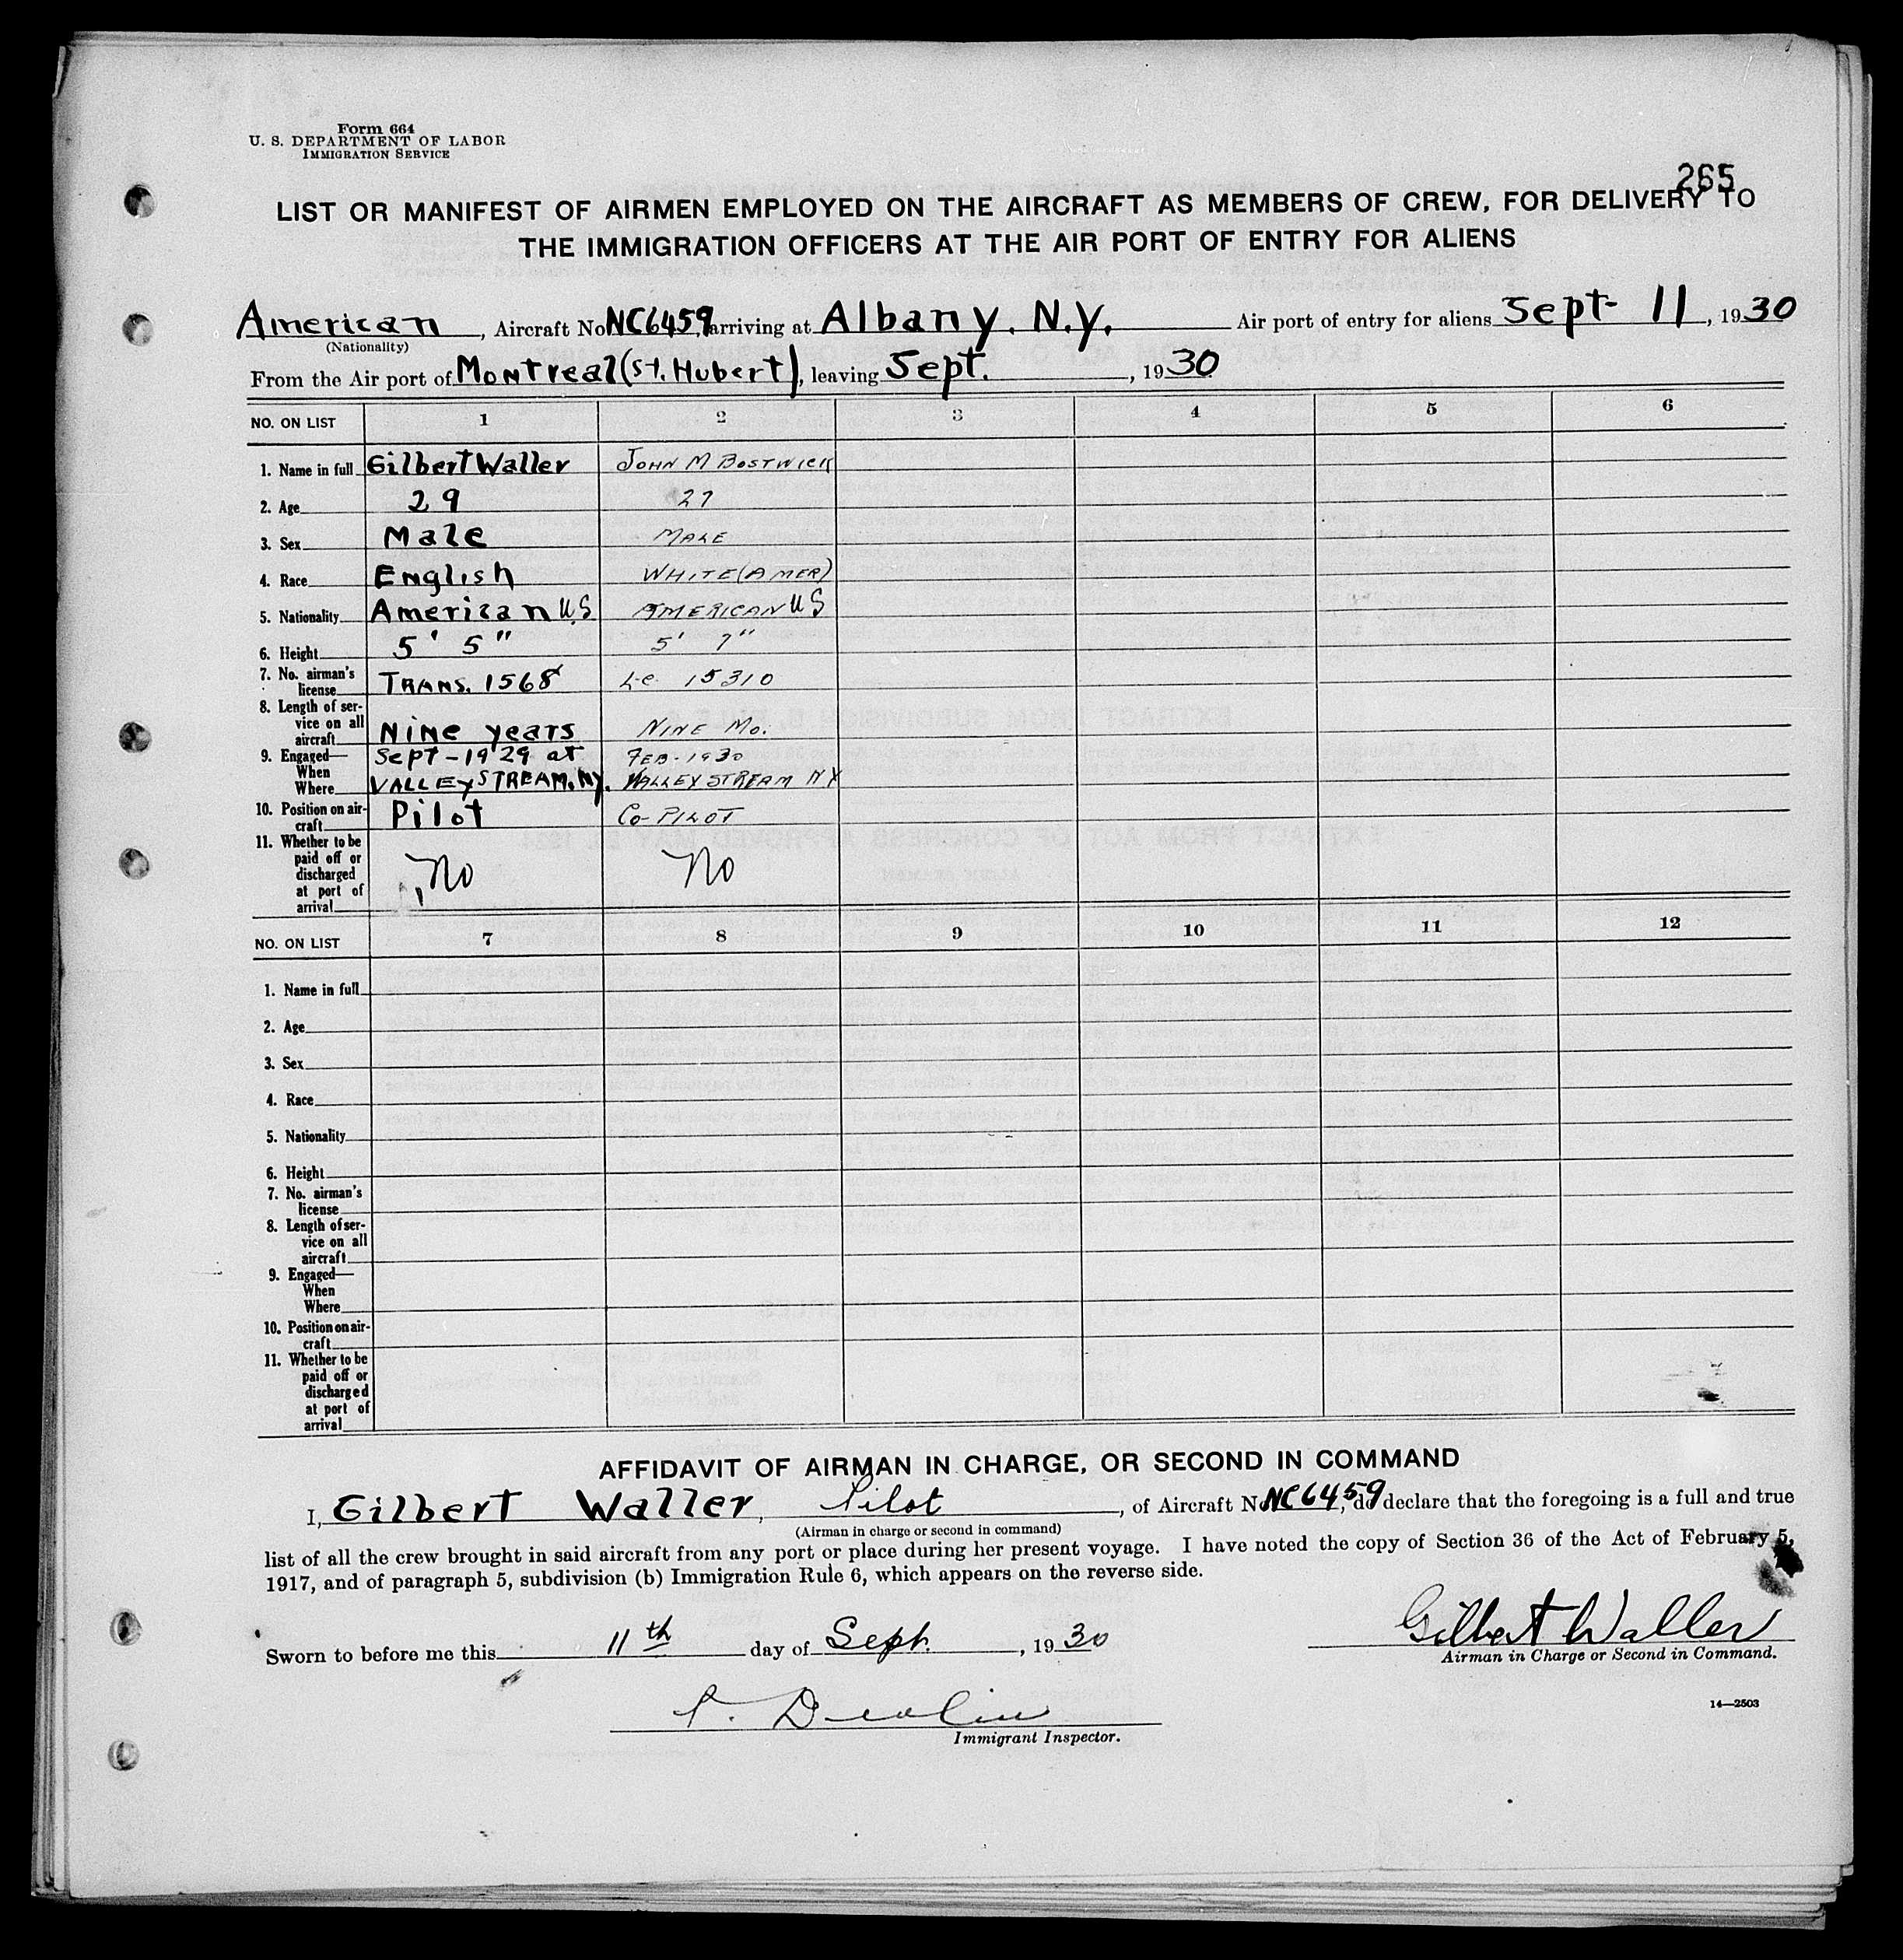 Form 664
U. S. DEPARTMENT OF LABOR
IMMIGRATION SERVICE
265
LIST OR MANIFEST OF AIRMEN EMPLOYED ON THE AIRCRAFT AS MEMBERS OF CREW, FOR DELIVERY TO
THE IMMIGRATION OFFICERS AT THE AIR PORT OF ENTRY FOR ALIENS
American, Aircraft No. NC6459, arriving at Albany. N.Y. Air port of entry for aliens Sept- 11, 1930
(Nationality)
From the Air port of Montreal (St. Hubert), leaving Sept., 1930
NO. ON LIST 1 2 3 4 5 6
1. Name in full Gilbert Waller JOHN M BOSTWICK
2. Age 29 27
3. Sex Male MALE
4. Race English WHITE (AMER)
5. Nationality American U.S AMERICAN US
6. Height 5' 5" 5' 7"
7. No. airman's
license TRANS. 1568 Lc. 15310
8. Length of ser-
vice on all
aircraft Nine years NINE MO.
9. Engaged— Sept-1929 at FEB-1930
When
Where VALLEY STREAM, NY. VALLEY STREAM NY
10. Position on air-
craft Pilot CO-PILOT
11. Whether to be
paid off or
discharged No No
at port of
arrival
NO. ON LIST 7 8 9 10 11 12
1. Name in full
2. Age
3. Sex
4. Race
5. Nationality
6. Height
7. No. airman's
license
8. Length of ser-
vice on all
aircraft
9. Engaged—
When
Where
10. Position on air-
craft
11. Whether to be
paid off or
discharged
at port of
arrival
AFFIDAVIT OF AIRMAN IN CHARGE, OR SECOND IN COMMAND
I, Gilbert Waller, Pilot, of Aircraft No. NC6459, do declare that the foregoing is a full and true
(Airman in charge or second in command)
list of all the crew brought in said aircraft from any port or place during her present voyage. I have noted the copy of Section 36 of the Act of February 5,
1917, and of paragraph 5, subdivision (b) Immigration Rule 6, which appears on the reverse side.
Gilbert Waller
Sworn to before me this 11th day of Sept., 1930
Airman in Charge or Second in Command.
Devlin
14—2503
Immigrant Inspector.